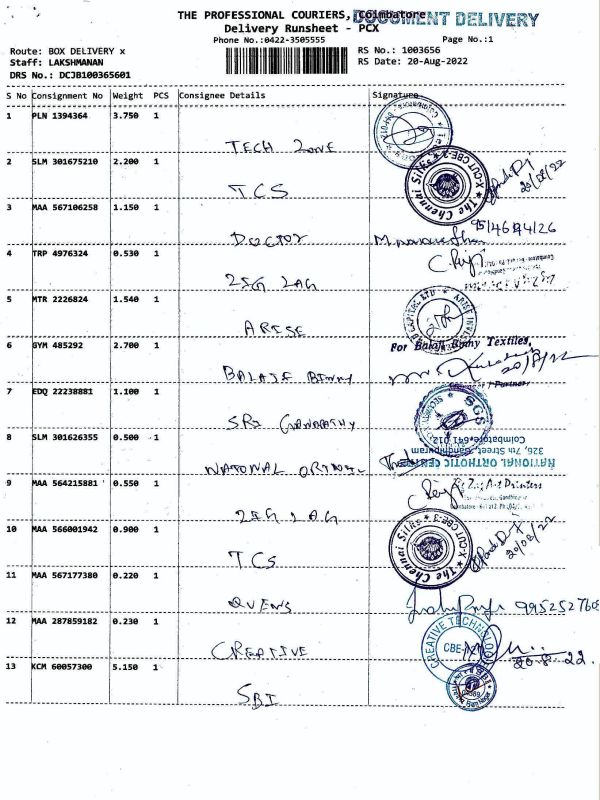 THE PROFESSIONAL COURIERS, Coimbatore
DOCUMENT DELIVERY
Delivery Runsheet - PCX
Phone No.:0422-3505555
Page No.:1
Route: BOX DELIVERY x
RS No.: 1003656
Staff: LAKSHMANAN
RS Date: 20-Aug-2022
DRS No.: DCJB100365601
S No Consignment No Weight PCS Consignee Details Signature
1 PLN 1394364 3.750 1
TECH ZONE
2 SLM 301675210 2.200 1
The Chennai Silks X-CUT CBE-2
TCS
20/08/22
3 MAA 567106258 1.150 1
DOCTOR
4 TRP 4976324 0.530 1
ZIG ZAG
5 MTR 2226824 1.540 1
ARISE
6 GYM 485292 2.700 1
For Balaji Binny Textiles,
BALAJI BINNY
20/8/22
Partner
7 EDQ 22238881 1.100 1
SRI GANAPATHY
SGS
8 SLM 301626355 0.500 1
Coimbatore-641 012
326, 7th Street, Gandhipuram
NATIONAL ORTHOTIC CENTRE
NATIONAL
9 MAA 564215881 0.550 1
Zig Zag Art Printers
ZIG ZAG
10 MAA 566001942 0.900 1
The Chennai Silks X-CUT CBE-2
TCS
20/08/22
11 MAA 567177380 0.220 1
QUENS
12 MAA 287859182 0.230 1
CREATIVE TECHNOLOGY
CBE
CREATIVE
20-8-22.
13 KCM 60057300 5.150 1
SBI
SBI